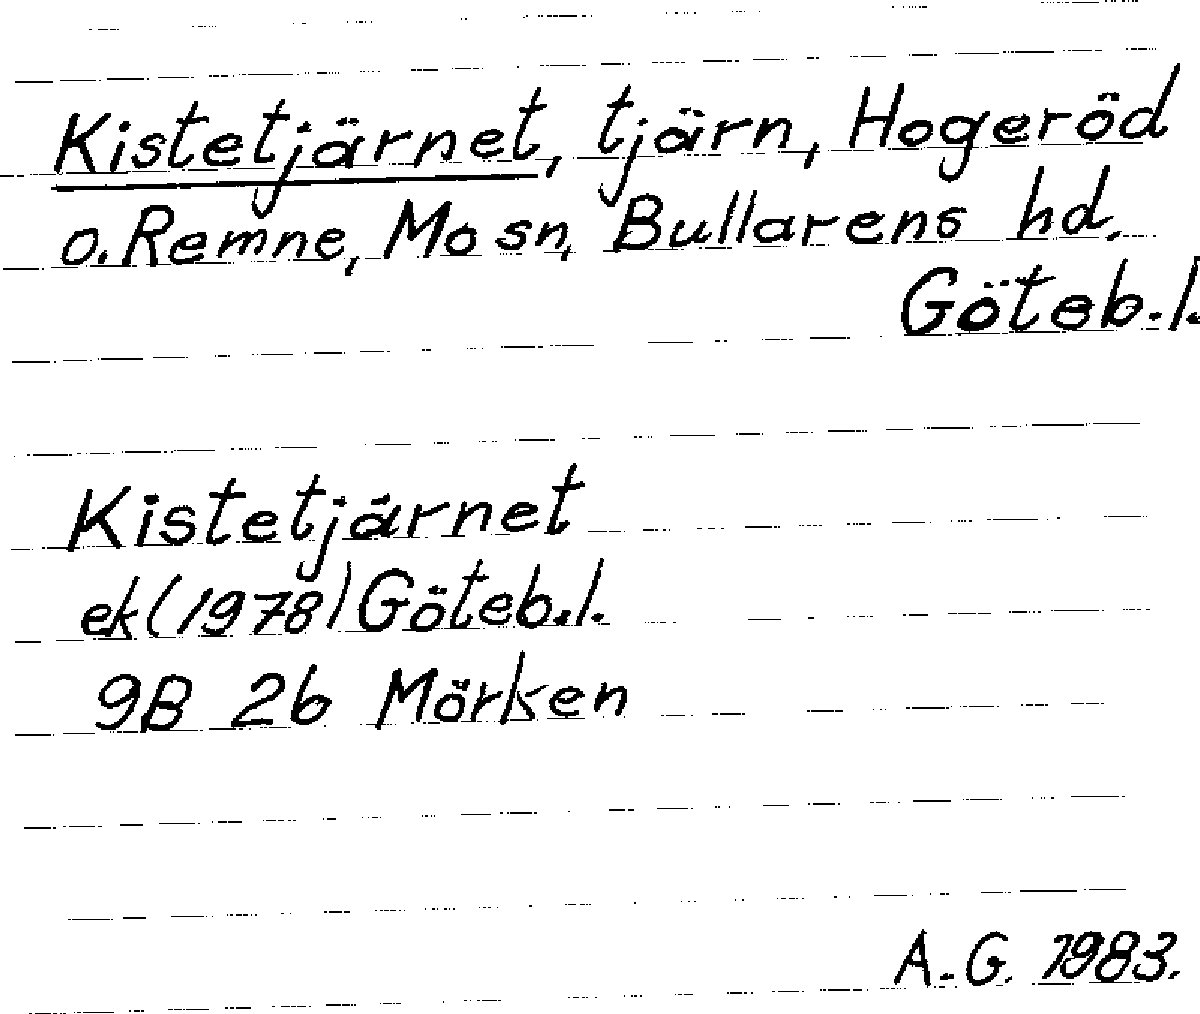 Kistetjärnet, tjärn, Hogeröd
o. Remne, Mo sn, Bullarens hd.
Göteb.l.
Kistetjärnet
ek (1978) Göteb.l.
9B 2b Mörken
A.-G. 1983.